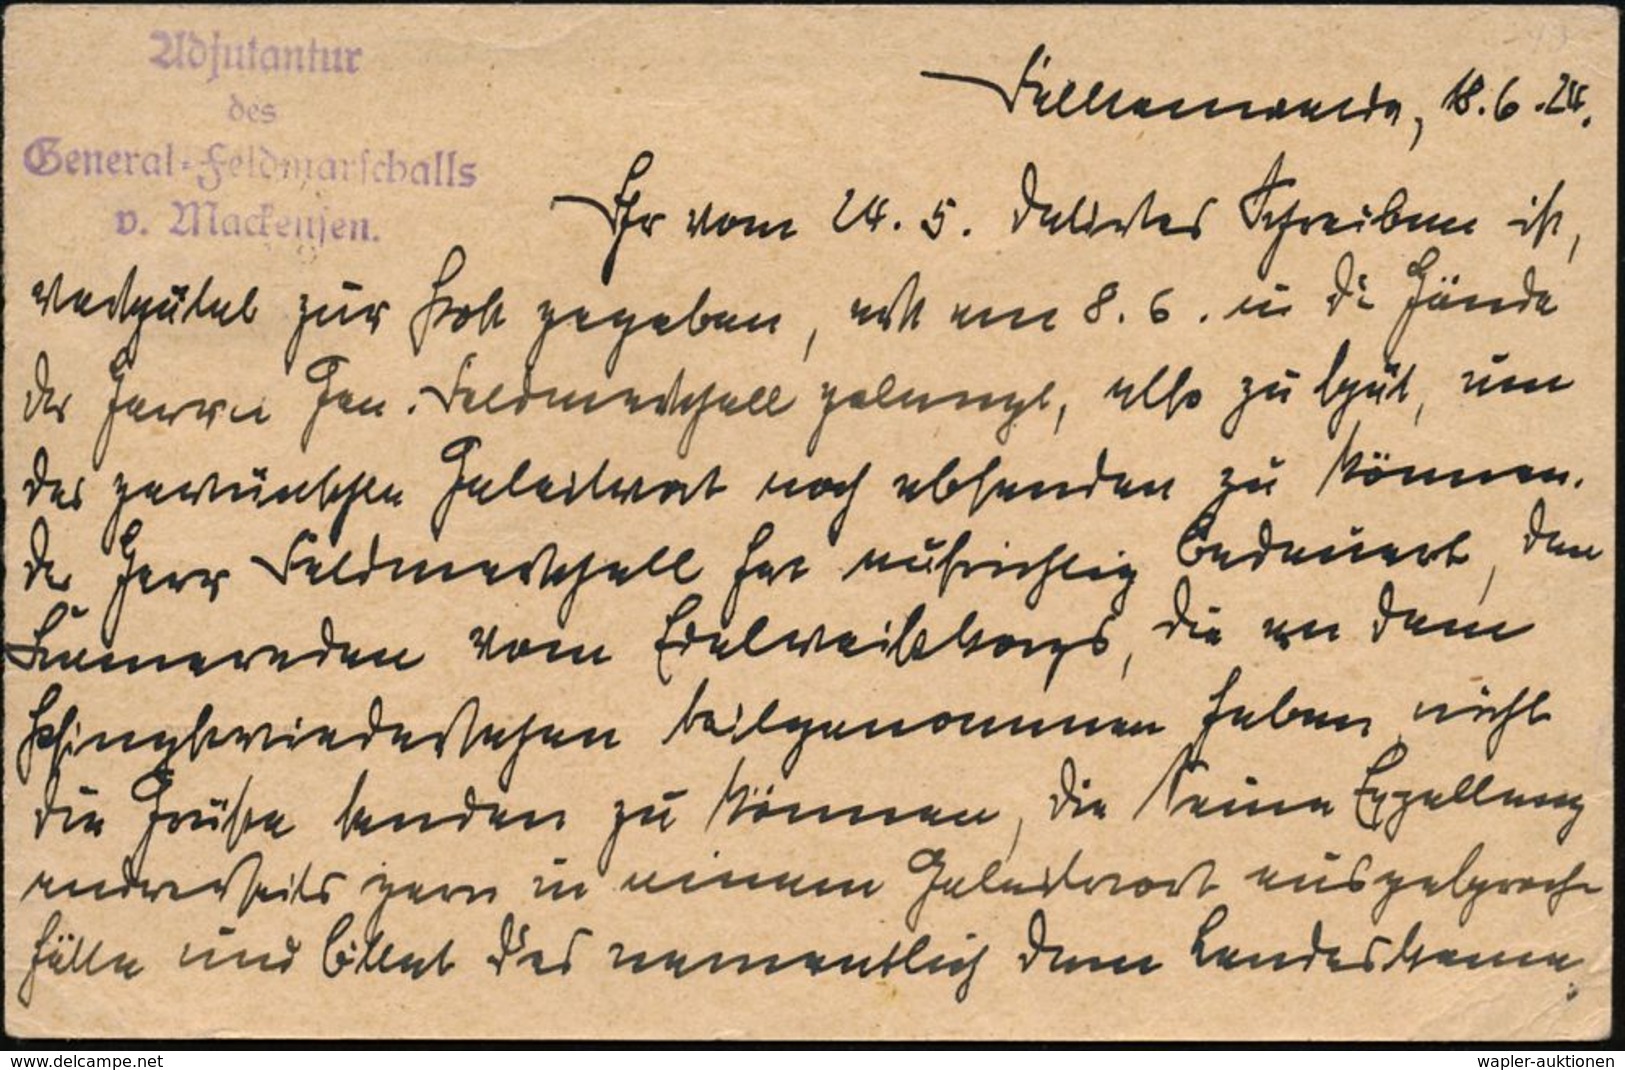 Adjutantur
des
General-Feldmarschalls
v. Mackensen.
Falkenwalde, 18.6.24.
Ihr vom 24.5. datirtes Schreiben ist,
verspätet zur Post gegeben, erst am 8.6. in die Hände
des Herrn Gen. Feldmarschall gelangt, also zu spät, um
das gewünschte Geleitwort noch absenden zu können.
Der Herr Feldmarschall hat aufrichtig bedauert, den
Kameraden vom Edelweißkorps, die an dem
Pfingstwiedersehen teilgenommen haben nicht
die Grüße senden zu können, die Seine Exzellenz
andrerseits gern in einem Geleitwort ausgesproch
hätte und bittet dies namentlich dem Landeskame
www.delcampe.net
wapler-auktionen